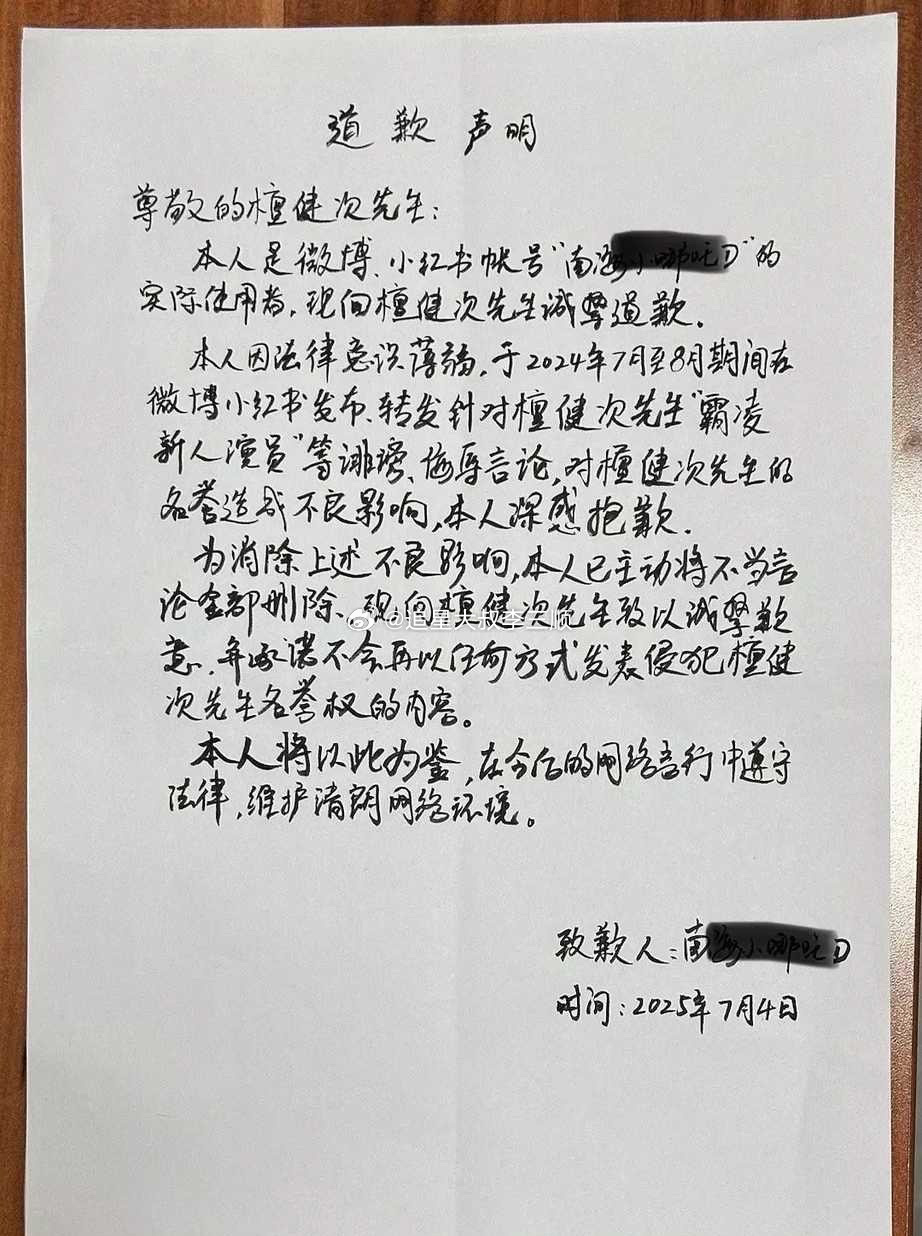 道歉声明
尊敬的檀健次先生：
本人是微博、小红书帐号“南 的
实际使用者，现向檀健次先生诚挚道歉。
本人因法律意识薄弱，于2024年7月至8月期间在
微博小红书发布、转发针对檀健次先生“霸凌
新人演员”等诽谤、侮辱言论，对檀健次先生的
名誉造成不良影响，本人深感抱歉。
为消除上述不良影响，本人已主动将不当言
论全部删除、现向檀健次先生致以诚挚歉
@追星大叔李三顺
意、并承诺不会再以任何方式发表侵犯檀健
次先生名誉权的内容。
本人将以此为鉴，在今后的网络言行中遵守
法律，维护清朗网络环境。
致歉人：南
时间：2025年7月4日